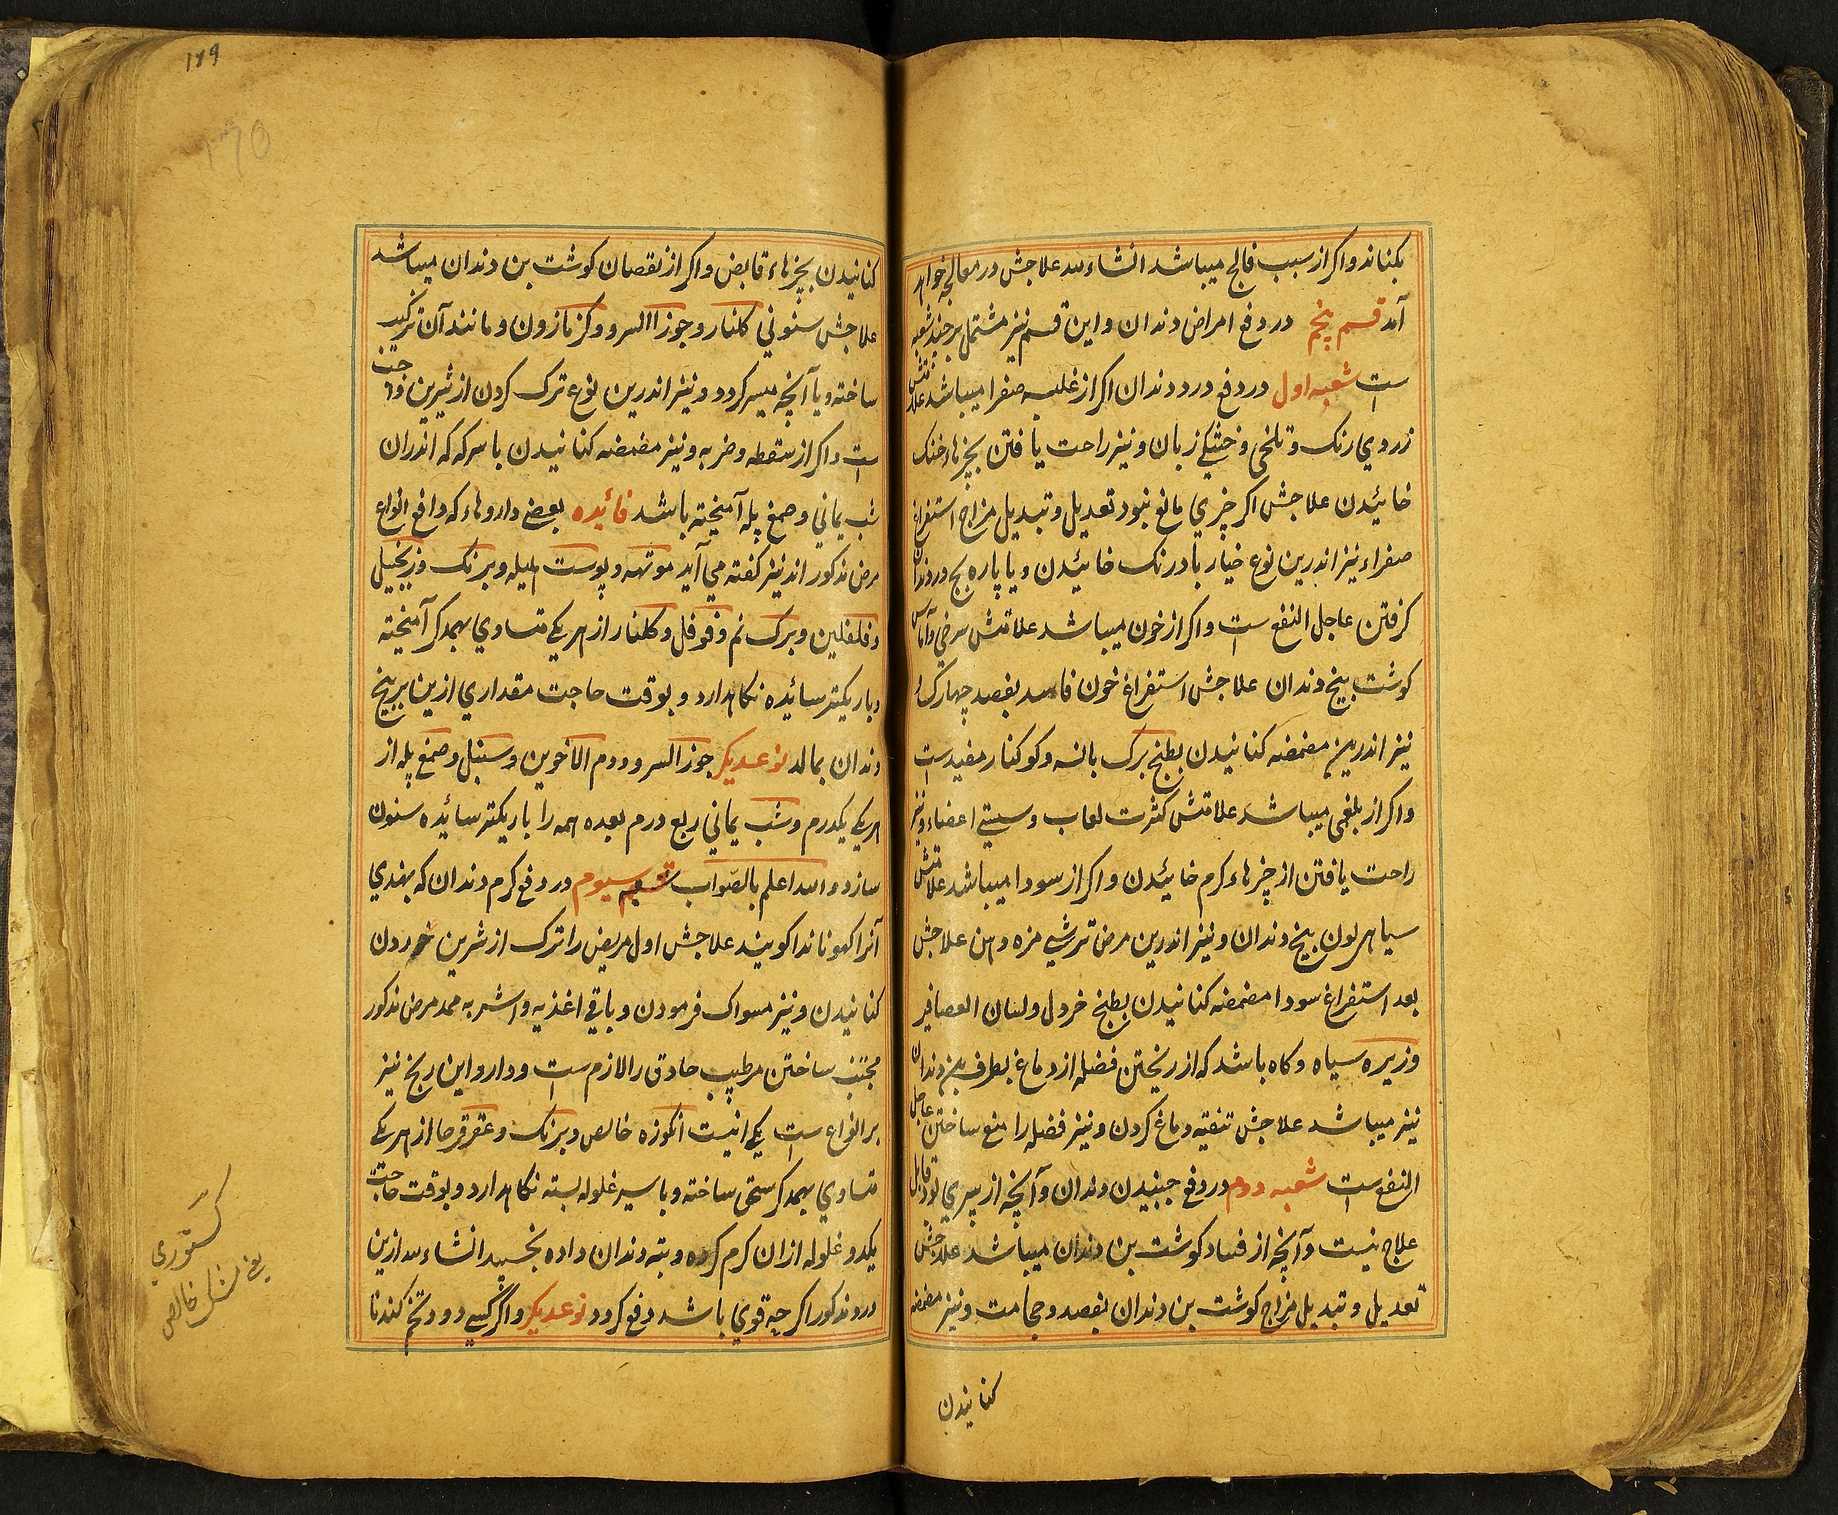 بکنانند و اکر از سبب فالج میباشد انشاءالله علاجش در معالجه خواهد
آمد قسم پنجم در دفع امراض دندان و این قسم نیز مشتمل بر چند شعبه
است شعبه اول در دفع درد دندان اکر از غلبه صفرا میباشد علامتش
زردي رنک و تلخی و خشکی زبان و نیز راحت یافتن بچیزهاء خنک
خائیدن علاجش اکر چیزي مانع نبود تعدیل و تبدیل مزاج استفراغ
صفراء نیز اندرین نوع خیار بادرنک خائیدن و یا پاره یخ در دندان
کرفتن عاجل النفع است و اکر از خون میباشد علامتش سرخي و آماس
کوشت بیخ دندان علاجش استفراغ خون فاسد بفصد چهاررک و
نیز اندرین مضمضه کنانیدن بطبخ برک بانسه و کوکنار مفید است
و اکر از بلغمی میباشد علامتش کثرت لعاب و سستی اعضاء و نیز
راحت یافتن از چیزهاء کرم خائیدن و اکر از سودا میباشد علامتش
سیاهی لون بیخ دندان و نیز اندرین مرض ترشی مزه دهن علاجش
بعد استفراغ سودا مضمضه کنانیدن بطبخ خردل و لسان العصافیر
و زیره سیاه و کاه باشد که از ریختن فضله از دماغ بطرف بن دندان
نیز میباشد علاجش تنقیه دماغ کردن و نیز فضله را منع ساختن عاجل
النفع است شعبه دوم در دفع جنبیدن دندان و آنچه از پیري بود قابل
علاج نیست و آنچه از فساد کوشت بن دندان میباشد علاجش
تعدیل و تبدیل مزاج کوشت بن دندان بفصد و حجامت و نیز مضمضه
کنانیدن
۱۶۹
170
کنانیدن بچیزهاء قابض و اکر از نقصان کوشت بن دندان میباشد
علاجش سنوني کلنار و جوز السرو و کزمازون و مانند آن ترکیب
ساخته و یا آنچه میسر کردد و نیز اندرین نوع ترک کردن از شیرین
است و اکر از سقطه و ضربه و نیز مضمضه کنانیدن با سرکه که اندران
شب یماني و صمغ پله آمیخته باشد فائیده بعضی داروهاء که دافع انواع
مرض مذکور اند نیز کفته مي آید موتهه و پوست هلیله و برنک و زنجبیل
و فلفلین و برک نم و فوفل و کلنار از هر یکی متساوي بهمدکر آمیخته
و باریکتر سائیده نکاهدارد و بوقت حاجت مقداري ازین بر بیخ
دندان بمالد نوعدیکر جوز السرو و دم الاخوین و سنبل و صمغ پله از
هر یکی یکدرم و شب یماني ربع درم بعده همه را باریکتر سائیده سنون
سازد و الله اعلم بالصواب شعبه سیوم در دفع کرم دندان که بهندي
آنرا کهونا ندا کویند علاجش اول مریض را ترک از شرین خوردن
کنانیدن و نیز مسواک فرمودن و باقي اغذیه و اشربه ممد مرض مذکور
مجتنب ساختن مر طبیب حاذق را لازم است و دارو این رنج نیز
بر انواع است یکی اینست انکوزه خالص و برنک و عقرقرحا از هر یکی
متساوي بهمدکر سحق ساخته و با سیر غلوله بسته نکاهدارد و بوقت حاجت
یکدو غلوله ازان کرم کرده و بته دندان داده بخسپد انشاءالله ازین
درد مذکور اکرچه قوي باشد دفع کرود نوعدیکر و اکر کسی دود تخم کندنا
کستوري
یعني مشک خالص